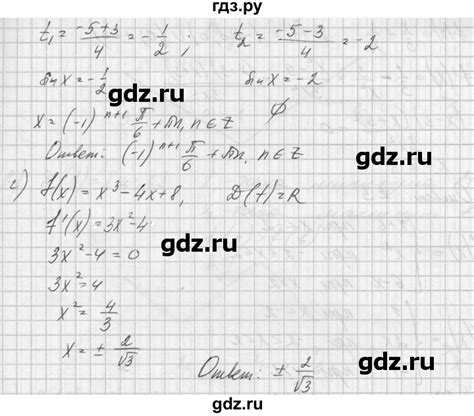 гдз.ру
t₁ = (-5+3)/4 = -1/2 ; t₂ = (-5-3)/4 = -2
sin x = -1/2 sin x = -2
gdz.ru
x = (-1)ⁿ⁺¹ π/6 + πn, n ∈ Z ∅
Ответ: (-1)ⁿ⁺¹ π/6 + πn, n ∈ Z
gdz.ru
г) f(x) = x³ - 4x + 8, D(f) = R
f'(x) = 3x² - 4
gdz.ru
3x² - 4 = 0
3x² = 4
x² = 4/3
gdz.ru
x = ± 2/√3
Ответ: ± 2/√3
gdz.ru